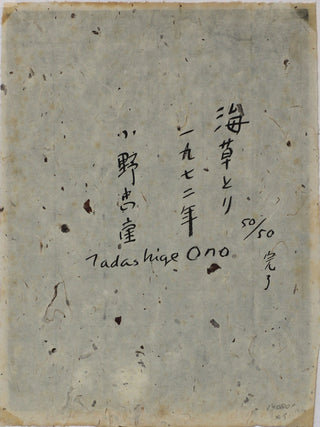 海草とり
一九七二年
50/50 完了
小野忠重
Tadashige Ono